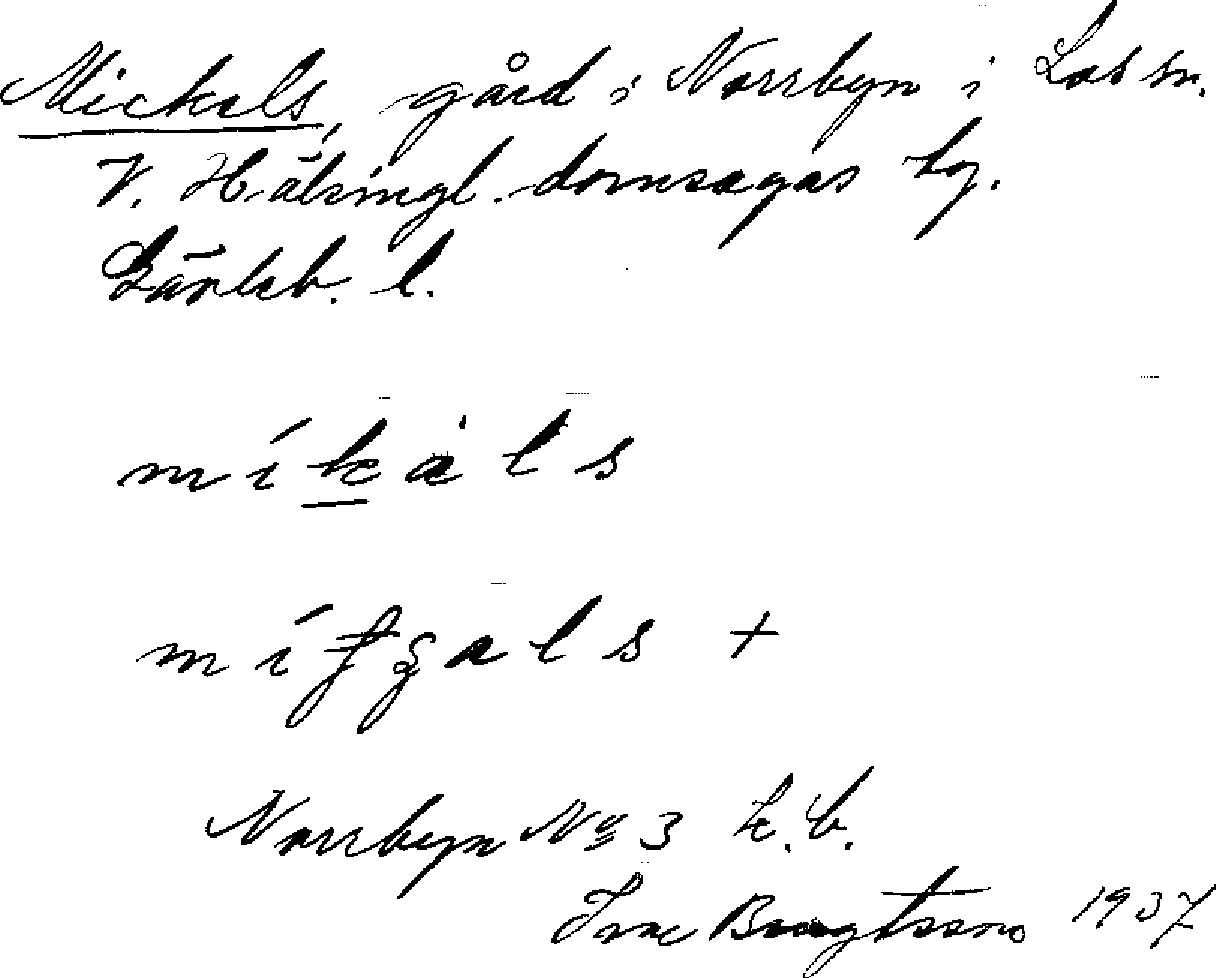 Mickels, gård i Norrbyn i Los sn.
V. Hälsingl. domsagas tg.
Gävleb. l.
míkàls
als +
Norrbyn Nº 3 k.b.
Bengtsson 1937